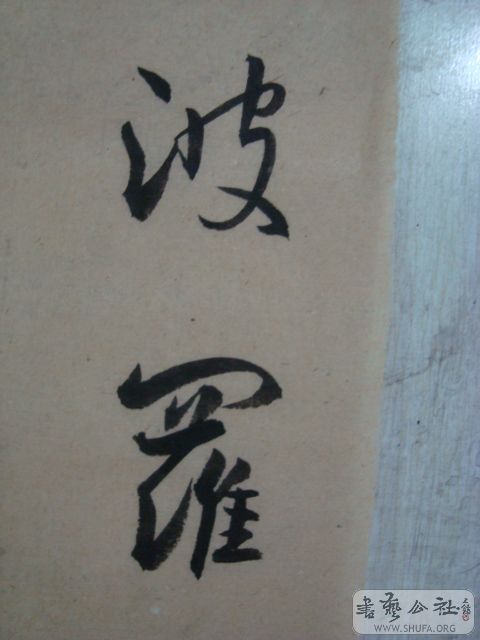 波
羅
書藝公社
WWW.SHUFA.ORG